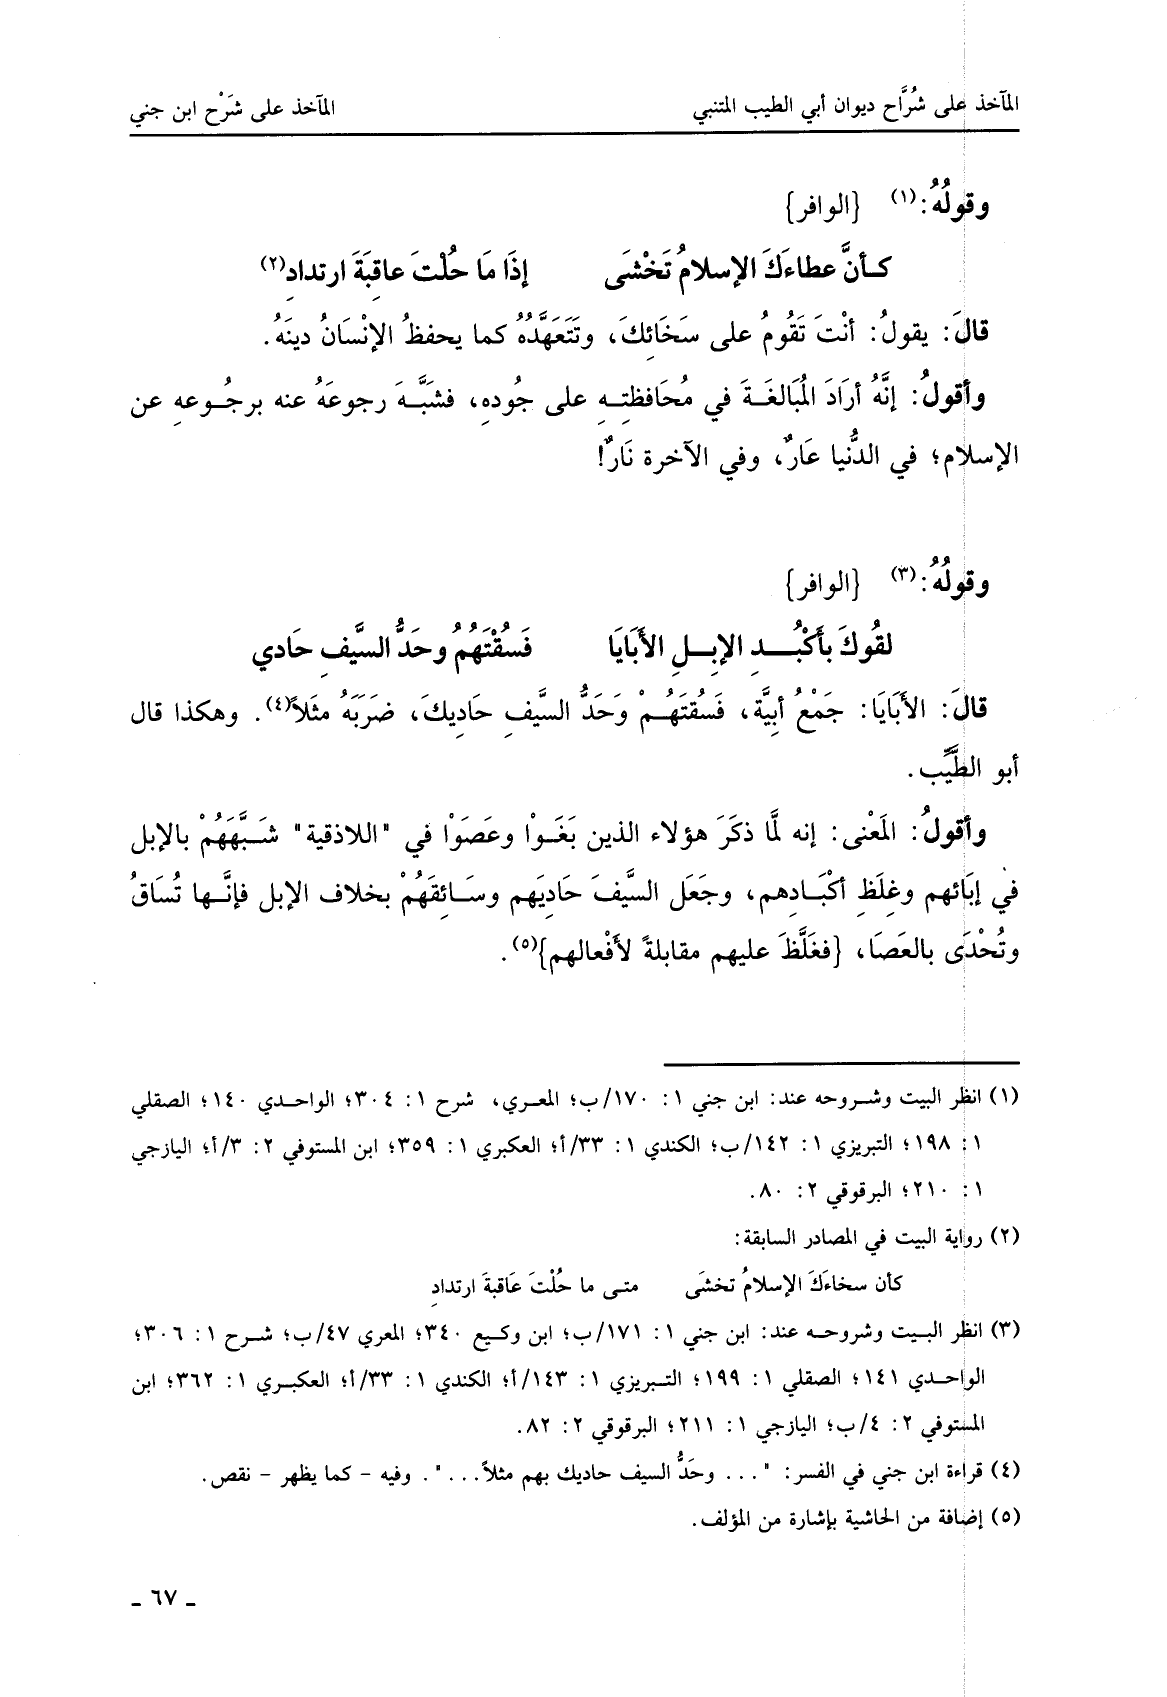 المآخذ على شُرَّاح ديوان أبي الطيب المتنبي المآخذ على شَرْح ابن جني
وقولُهُ:(١) {الوافر}
كـأنَّ عطاءَكَ الإسلامُ تَخْشَى إذَا مَا حُلْتَ عاقِبَةَ ارتدادِ(٢)
قالَ: يقولُ: أنْتَ تَقُومُ على سَخَائِكَ، وتَتَعَهَّدُهُ كما يحفظُ الإنْسَانُ دينَهُ.
وأقولُ: إنَّهُ أرَادَ المُبَالغَـةَ في مُحَافظتِـهِ على جُودِهِ، فشبَّـهَ رجوعَهُ عنه برجُـوعهِ عن
الإسلام؛ في الدُّنيا عَارٌ، وفي الآخرة نَارٌ!
وقولُهُ:(٣) {الوافر}
لقُوكَ بأَكْبُـــدِ الإبِــلِ الأَبَايَا فَسُقْتَهُمُ وحَدُّ السيَّفِ حَادي
قالَ: الأَبَايَا: جَمْعُ أبِيَّة، فَسُقتَهُـمْ وَحَدُّ السيَّفِ حَادِيكَ، ضرَبَهُ مثَلاً(٤). وهكذا قال
أبو الطيَّب.
وأقولُ: المَعْنى: إنه لمَّا ذكَرَ هؤلاء الذين بَغَـوْا وعَصَوْا في "اللاذقية" شَبَّهَهُمْ بالإبل
في إبَائهم وغِلَظِ أكْبَـادِهم، وجَعَل السيَّفَ حَادِيَهم وسَـائِقَهُمْ بخلاف الإبل فإنَّـها تُسَاقُ
وتُحْدَى بالعَصَا، {فغَلَّظَ عليهم مقابلةً لأَفْعالهم}(٥).
(١) انظر البيت وشـروحه عند: ابن جني ١: ١٧٠/ب؛ المعـري، شرح ١: ٣٠٤؛ الواحـدي ١٤٠؛ الصقلي
١: ١٩٨؛ التبريزي ١: ١٤٢/ب؛ الكندي ١: ٣٣/أ؛ العكبري ١: ٣٥٩؛ ابن المستوفي ٢: ٣/أ؛ اليازجي
١: ٢١٠؛ البرقوقي ٢: ٨٠.
(٢) رواية البيت في المصادر السابقة:
كأن سخاءَكَ الإسلامُ تخشَى متـى ما حُلْتَ عَاقبةَ ارتدادِ
(٣) انظر البـيت وشروحـه عند: ابن جني ١: ١٧١/ب؛ ابن وكـيع ٣٤٠؛ المعري ٤٧/ب؛ شـرح ١: ٣٠٦؛
الواحـدي ١٤١؛ الصقلي ١: ١٩٩؛ التـبريزي ١: ١٤٣/أ؛ الكندي ١: ٣٣/أ؛ العكبـري ١: ٣٦٢؛ ابن
المستوفي ٢: ٤/ب؛ اليازجي ١: ٢١١؛ البرقوقي ٢: ٨٢.
(٤) قراءة ابن جني في الفسر: "... وحَدُّ السيف حاديك بهم مثلاً...". وفيه - كما يظهر - نقص.
(٥) إضافة من الحاشية بإشارة من المؤلف.
ـ ٦٧ ـ